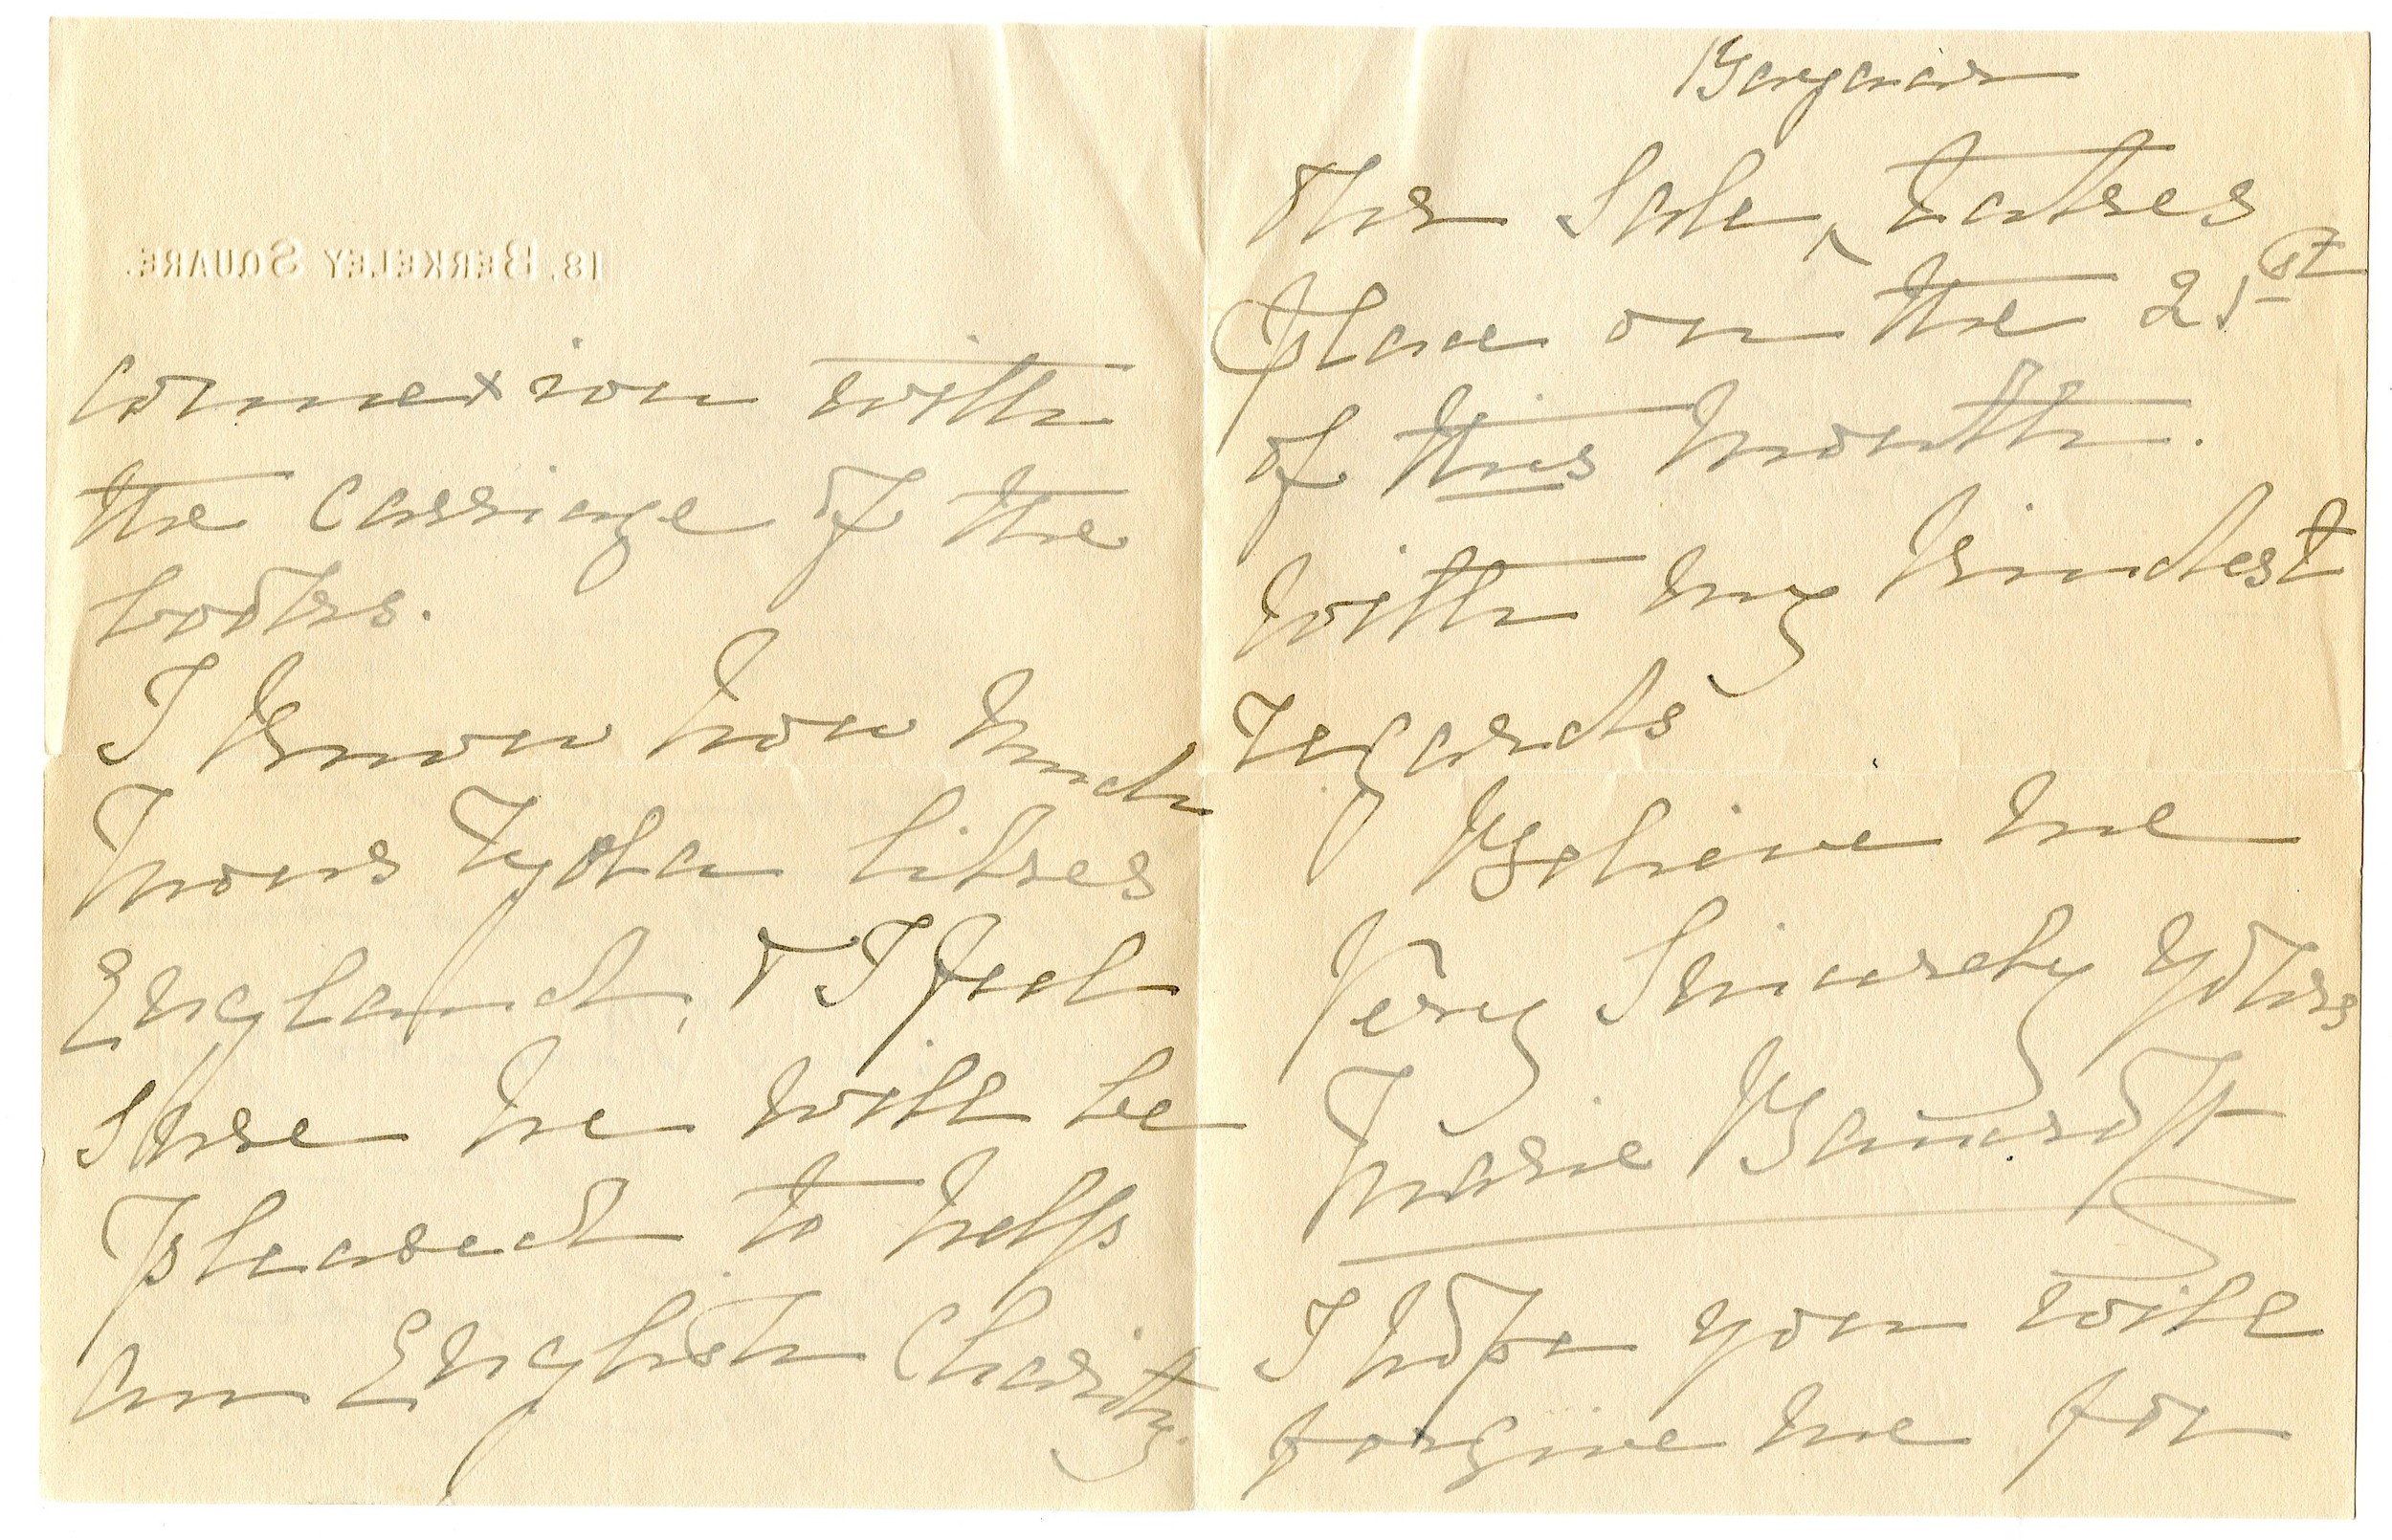 18, BERKELEY SQUARE.
Connexion with
the carriage of the
books.
I know how much
Mons Zola likes
England, & I feel
sure he will be
pleased to help
an English Charity.
Bazaar
The Sale ^ takes
place on the 21st
of this month.
With my kindest
regards
Believe me
Very Sincerely yours
Marie Bancroft
I hope you will
forgive me for